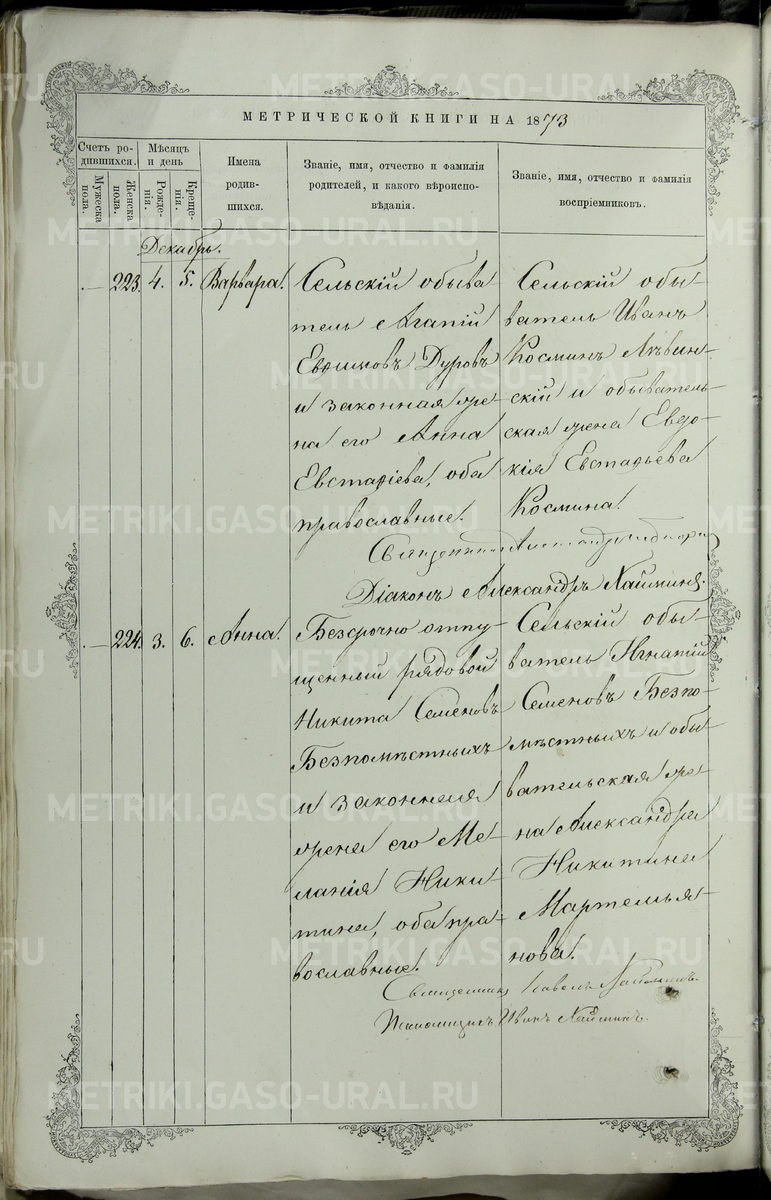 МЕТРИЧЕСКОЙ КНИГИ НА 1873
Счетъ ро-
дившихся.
Мужеска
пола.
Женска
пола.
Мѣсяцъ
и день
Рожде-
нія.
Креще-
нія.
Имена
родив-
шихся.
Званіе, имя, отчество и фамилія
родителей, и какого вѣроиспо-
вѣданія.
Званіе, имя, отчество и фамилія
воспріемниковъ.
Декабрь.
— 223. 4. 5. Варвара.
Сельскій обыва
тель Агапій
Евѳимовъ Дуровъ
и законная же-
на его Анна
Евстафіева, оба
православные.
Сельскій обы-
ватель Иванъ
Косминъ Лѣвин-
скій и обыватель-
ская жена Евдо-
кія Евстафьева
Космина.
Діаконъ Александръ Хайминъ.
— 224. 3. 6. Анна.
Безсрочно отпу-
щенный рядовой
Никита Семеновъ
Безпомѣстныхъ
и законная
жена его Ме-
ланія Ники-
тина, оба пра-
вославные.
Сельскій обы-
ватель Игнатій
Семеновъ Безпо-
мѣстныхъ и обы
вательская же-
на Александра
Никитина
Мартемья-
нова.
Священникъ Павелъ
Псаломщикъ Иванъ Хайминъ.
METRIKI.GASO-URAL.RU